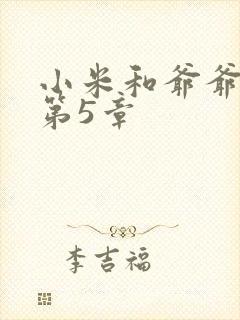 小米和爷爷
第5章
李吉福